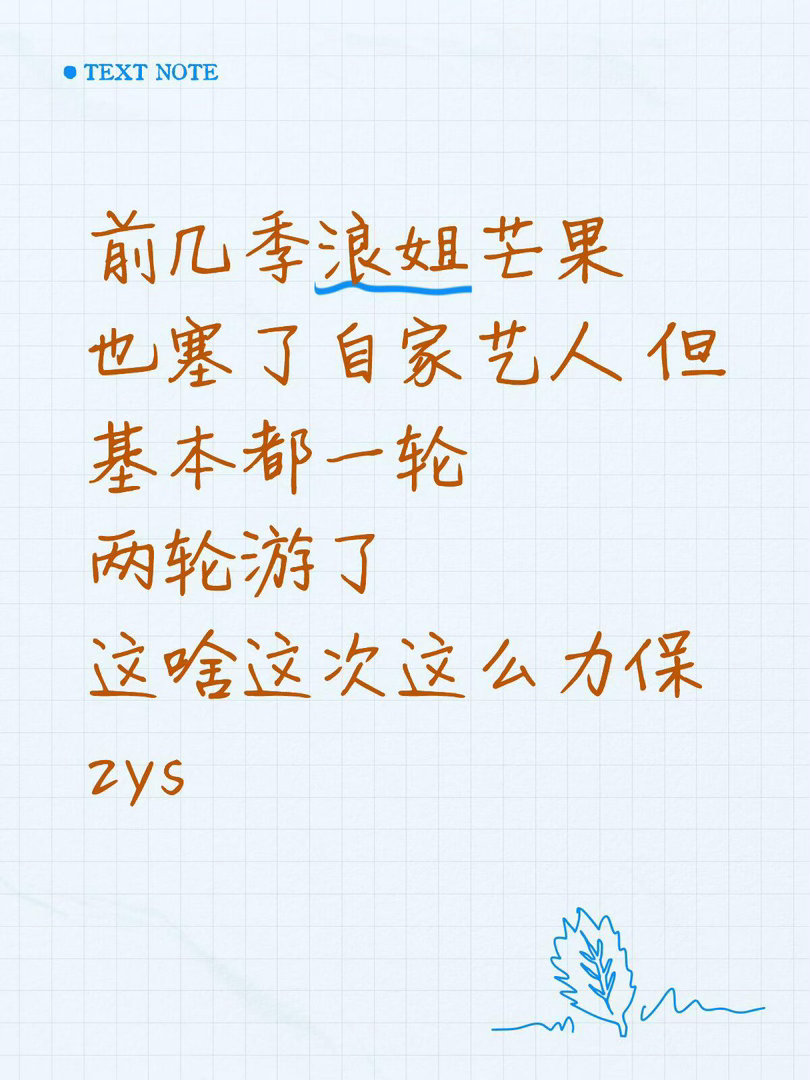 TEXT NOTE
前几季浪姐芒果
也塞了自家艺人 但
基本都一轮
两轮游了
这啥这次这么力保
zys